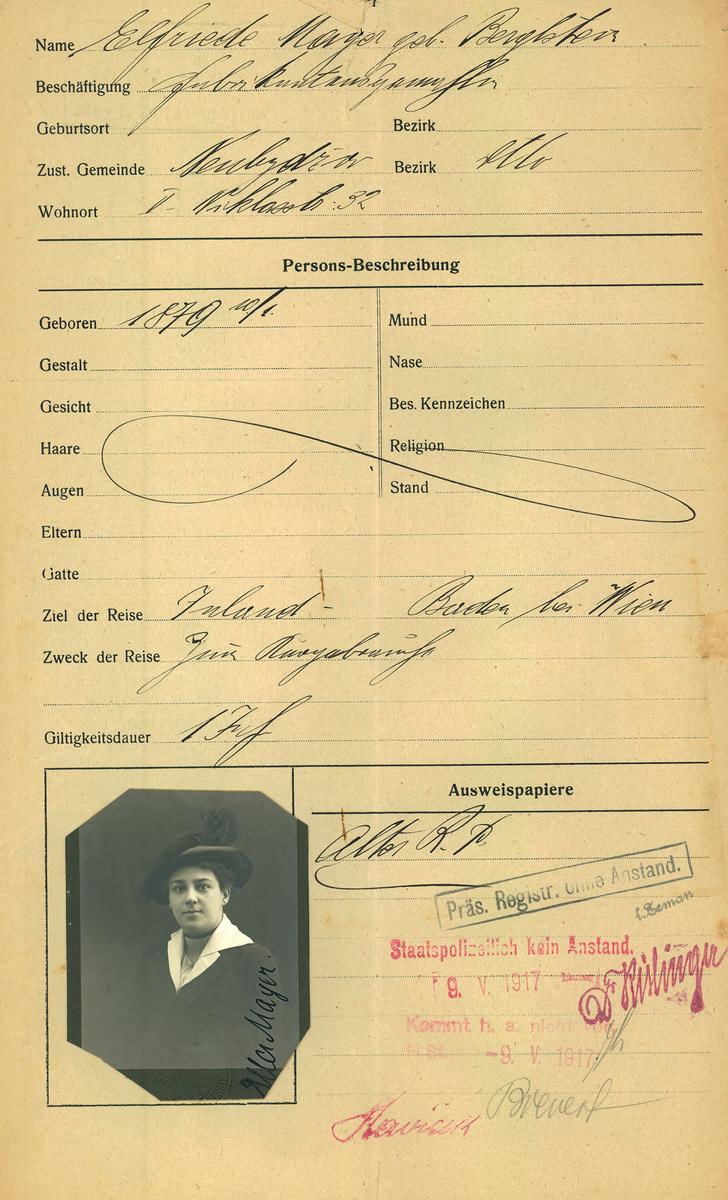 Name Elfriede Mayer geb. Bergstein
Beschäftigung Fabrikantensgemahlin
Geburtsort Bezirk
Zust. Gemeinde Neubydžov Bezirk dtto
Wohnort V- Niklasstr. 32
Persons-Beschreibung
Geboren 1879 10/1 Mund
Gestalt Nase
Gesicht Bes. Kennzeichen
Haare Religion
Augen Stand
Eltern
Gatte
Ziel der Reise Inland - Baden bei Wien
Zweck der Reise Zum Kurgebrauch
Giltigkeitsdauer 1
Ausweispapiere
Alter R. P.
Präs. Registr. ohne Anstand.
Zeman
Staatspolizeilich kein Anstand.
9. V. 1917
Kommt h. a. nicht vor
-9. V 1917
Mayer.